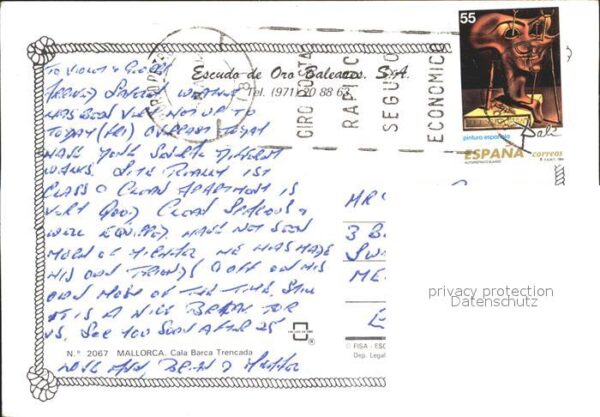 TO VIOLET & GEORGE
Escudo de Oro Baleares, S.A.
Tel. (971) 20 88 63
ARRIVED SAFELY WEATHER
HAS BEEN VERY HOT UP TO
TODAY (FRI) OVERCAST TODAY
HAVE DONE SEVERAL DIFFERENT
WALKS. SITE REALLY IST
CLASS & CLEAN APARTMENT IS
VERY GOOD CLEAN SPACIOUS &
WELL EQUIPPED HAVE NOT SEEN
MUCH OF HE HAS MADE
HIS OWN FRIENDS & OFF ON HIS
OWN MOST OF THE TIME. STILL
IT IS A NICE BREAK FOR
US. SEE YOU SOON AFTER 25
N.º 2067 MALLORCA. Cala Barca Trencada
LOVE ANN, BRIAN &
GIRO POSTAL
RAPIDO
SEGURO
ECONOMICO
55
Dalí
pintura española
ESPAÑA correos
MR
3 B
SW
ME
E
© FISA - ESC
Dep. Legal
privacy protection
Datenschutz